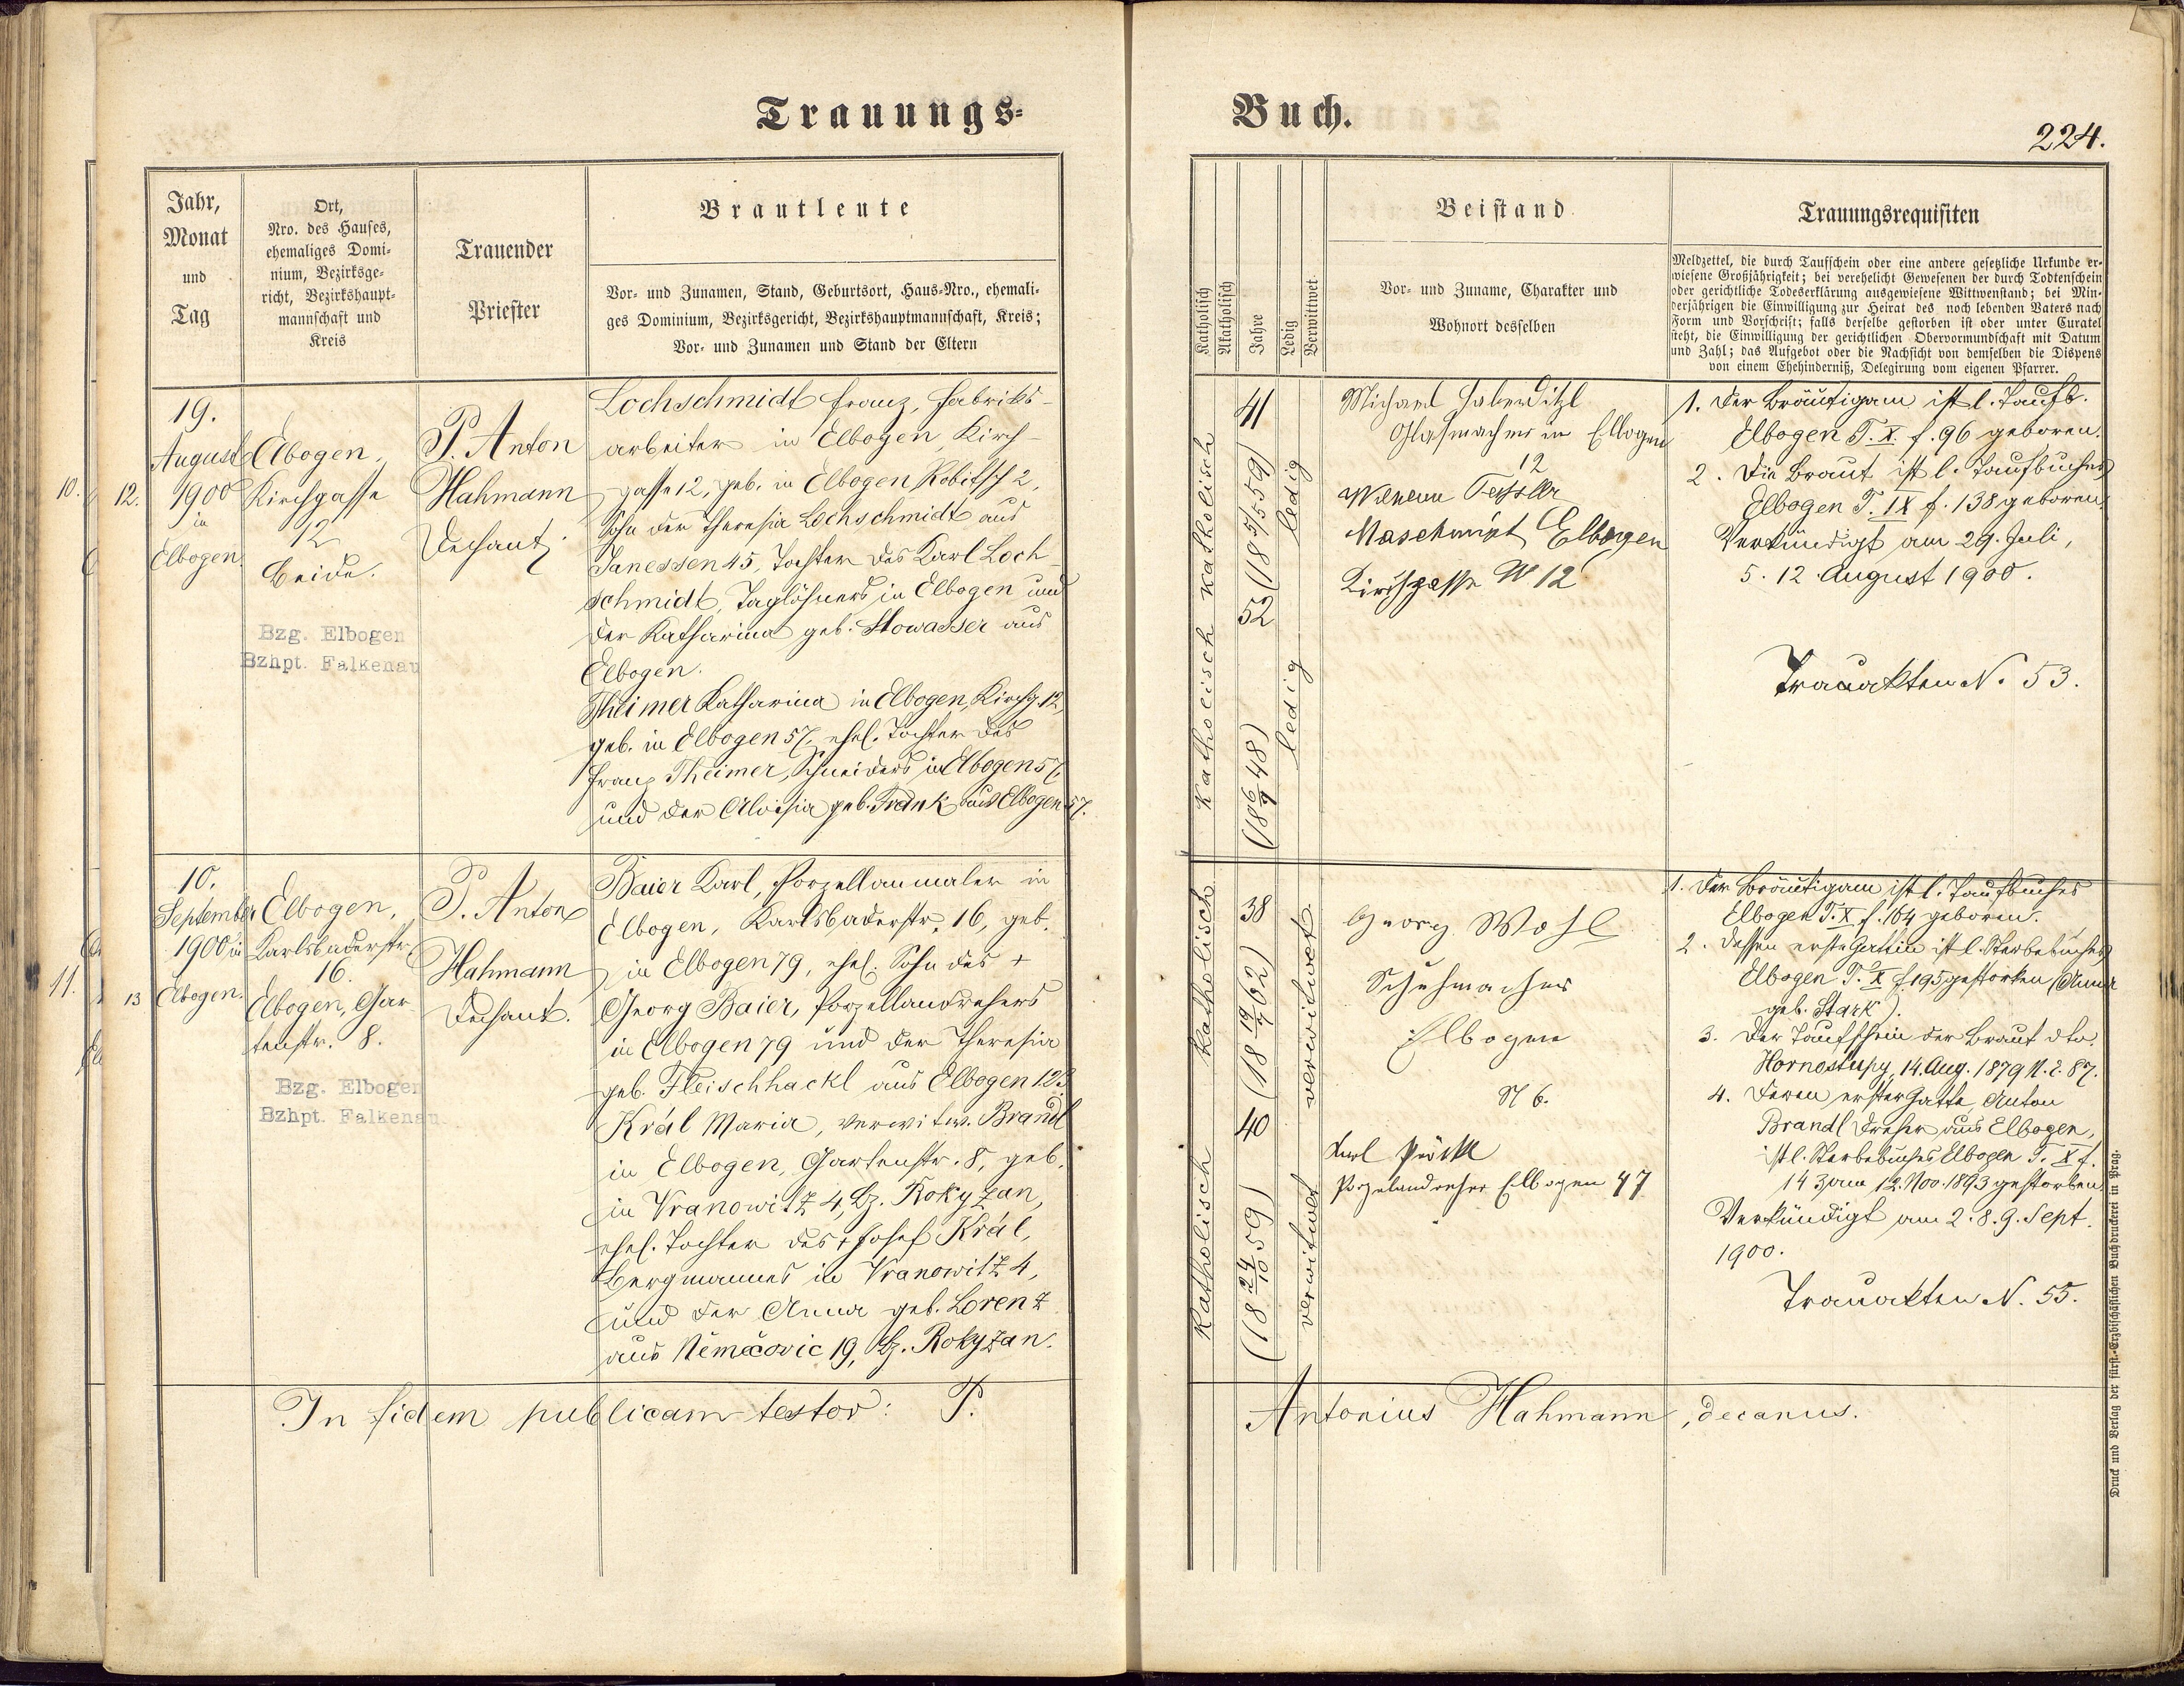 Trauungs-
Buch.
224.
Jahr,
Monat
und
Tag
Ort,
Nro. des Hauses,
ehemaliges Domi-
nium, Bezirksge-
richt, Bezirkshaupt-
mannschaft und
Kreis
Trauender
Priester
Brautleute
Vor- und Zunamen, Stand, Geburtsort, Haus-Nro., ehemali-
ges Dominium, Bezirksgericht, Bezirkshauptmannschaft, Kreis;
Vor- und Zunamen und Stand der Eltern
Katholisch
Akatholisch
Jahre
Ledig
Verwittwet
Beistand
Vor- und Zuname, Charakter und
Wohnort desselben
Trauungsrequisiten
Meldzettel, die durch Taufschein oder eine andere gesetzliche Urkunde er-
wiesene Großjährigkeit; bei verehelicht Gewesenen der durch Todtenschein
oder gerichtliche Todeserklärung ausgewiesene Wittwenstand; bei Min-
derjährigen die Einwilligung zur Heirat des noch lebenden Vaters nach
Form und Vorschrift; falls derselbe gestorben ist oder unter Curatel
steht, die Einwilligung der gerichtlichen Obervormundschaft mit Datum
und Zahl; das Aufgebot oder die Nachsicht von demselben die Dispens
von einem Ehehinderniß, Delegirung vom eigenen Pfarrer.
10.
12.
19.
August
1900
in
Elbogen.
Elbogen,
Kirchgasse
12
beide.
Bzg. Elbogen
Bzhpt. Falkenau
P. Anton
Hahmann
Dechant
Lochschmidt Franz, Fabriks-
arbeiter in Elbogen, Kirch-
gasse 12, geb. in Elbogen, Robitsch 2,
Sohn der Theresia Lochschmidt aus
Janessen 45, Tochter des Karl Loch-
schmidt, Taglöhners in Elbogen und
der Katharina geb. Stowasser aus
Elbogen.
Theimer Katharina in Elbogen, Kirchg. 12,
geb. in Elbogen 57, ehel. Tochter des
Franz Theimer, Schneiders in Elbogen 57,
und der Aloisia geb. Frank aus Elbogen 57.
katholisch
katholisch
41
(18 5/5 59)
52
(18 6/9 48)
ledig
ledig
Michael Haberditzl
Glasmacher in Elbogen
12
Maschinist Elbogen
Kirchgasse N 12
1. Der Bräutigam ist l. Taufb.
Elbogen T. X. f. 96 geboren.
2. Die Braut ist l. Taufbuches
Elbogen T. IX f. 138 geboren.
Verkündigt am 29. Juli,
5. 12. August 1900.
Trauakten N. 53.
11.
13
10.
September
1900 in
Elbogen.
Elbogen,
Karlsbaderstr.
16.
Elbogen, Gar-
tenstr. 8.
Bzg. Elbogen
Bzhpt. Falkenau.
P. Anton
Hahmann
Dechant.
Baier Karl, Porzellanmaler in
Elbogen, Karlsbaderstr. 16, geb.
in Elbogen 79, ehel. Sohn des +
Georg Baier, Porzellandrehers
in Elbogen 79 und der Theresia
geb. Fleischhackl aus Elbogen 123.
Král Maria, verwitw. Brandl
in Elbogen, Gartenstr. 8, geb.
in Vranowitz 4, Bz. Rokyzan,
ehel. Tochter des + Josef Král,
Bergmannes in Vranowitz 4,
und der Anna geb. Lorenz
aus Němčovic 19, Bz. Rokyzan.
katholisch
katholisch
38
(18 19/7 62)
40
(18 24/10 59)
verwitwet
verwitwet
Georg Wohl
Schuhmacher
Elbogen
N 6.
Karl
Porzelandreher Elbogen 47
1. Der Bräutigam ist l. Taufbuches
Elbogen T. X f. 164 geboren.
2. Dessen erste Gattin ist l. Sterbebuches
Elbogen T. X f. 195 gestorben (Anna
geb. Stark).
3. Der Taufschein der Braut dto.
14. Aug. 1879 N. E. 87.
4. Deren erster Gatte, Anton
Brandl Dreher aus Elbogen,
ist l. Sterbebuches Elbogen T. X f.
143 am 12. Nov. 1893 gestorben
Verkündigt am 2. 8. 9. Sept.
1900.
Trauakten N. 55.
In fidem publicam testor: P. Antonius Hahmann, decanus.
Druck und Verlag der fürst.-Erzbischöflichen Buchdruckerei in Prag.